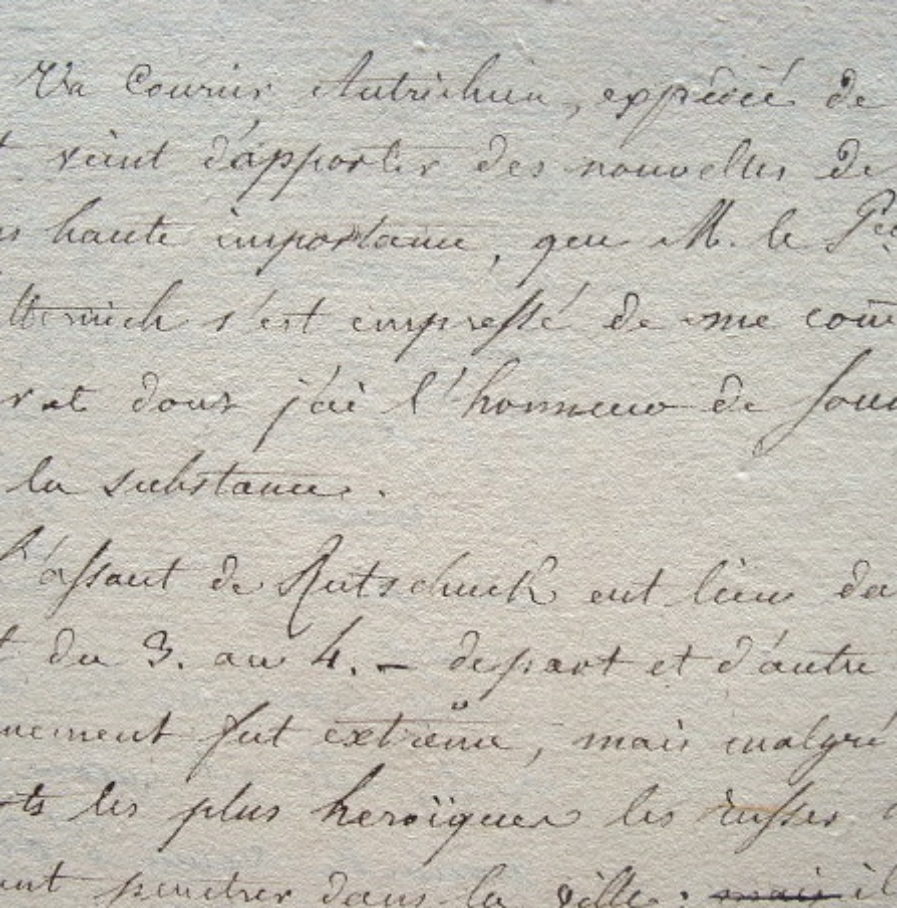 Un Courier Autrichien, expédié de
vient d'apporter des nouvelles de
haute importance, que M. le
s'est empressé de me com
et dont j'ai l'honneur de sou
la substance.
L'assaut de Rutschuck eut lieu da
du 3. au 4. — de part et d'autre
nement fut extrême, mais malgré
rts les plus heroïques les russes
pénétrer dans la ville: mais il